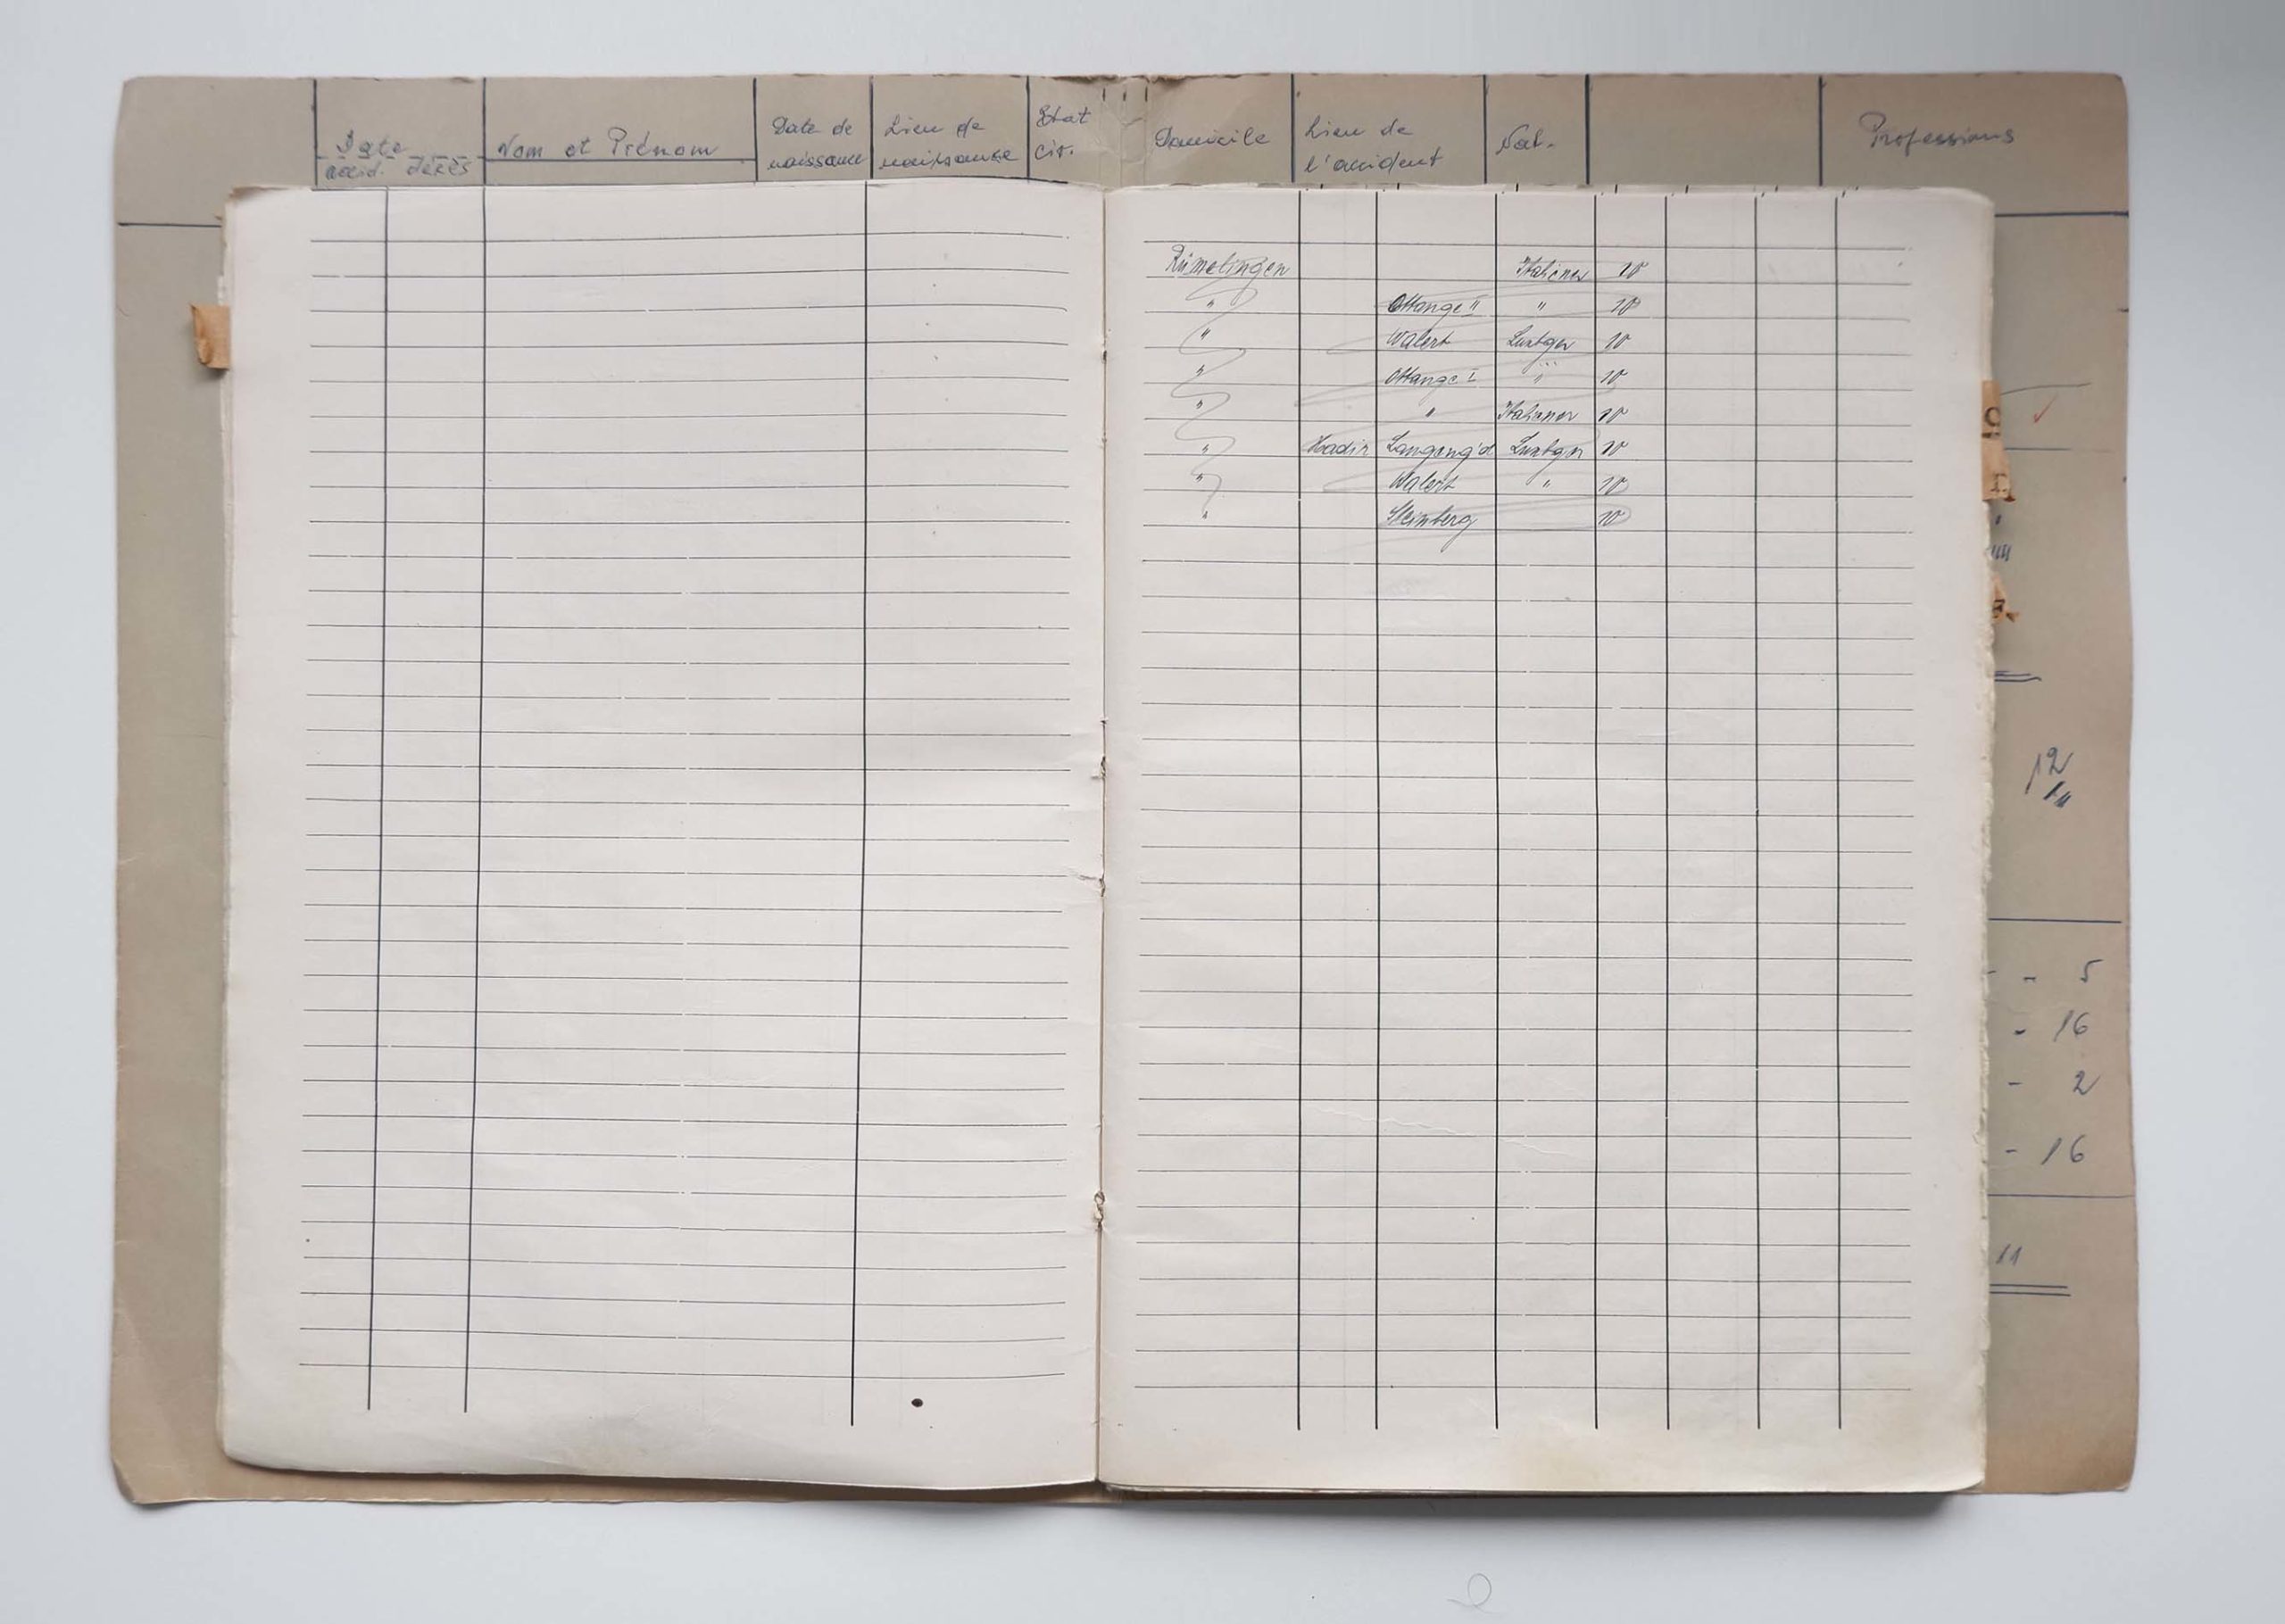 Date Nom et Prénom Date de Lieu de Etat Domicile Lieu de Nat. Professions
accid. décès naissance naissance civ. l'accident
Rümelingen Italiener 10
" Ottange II " 10
" Walert Luxbgr 10
" Ottange I " 10
" " Italiener 10
" Hadir Langeng'd Luxbgr 10
" Walert " 10
" Steinberg 10
12
- 5
- 16
- 2
- 16
11